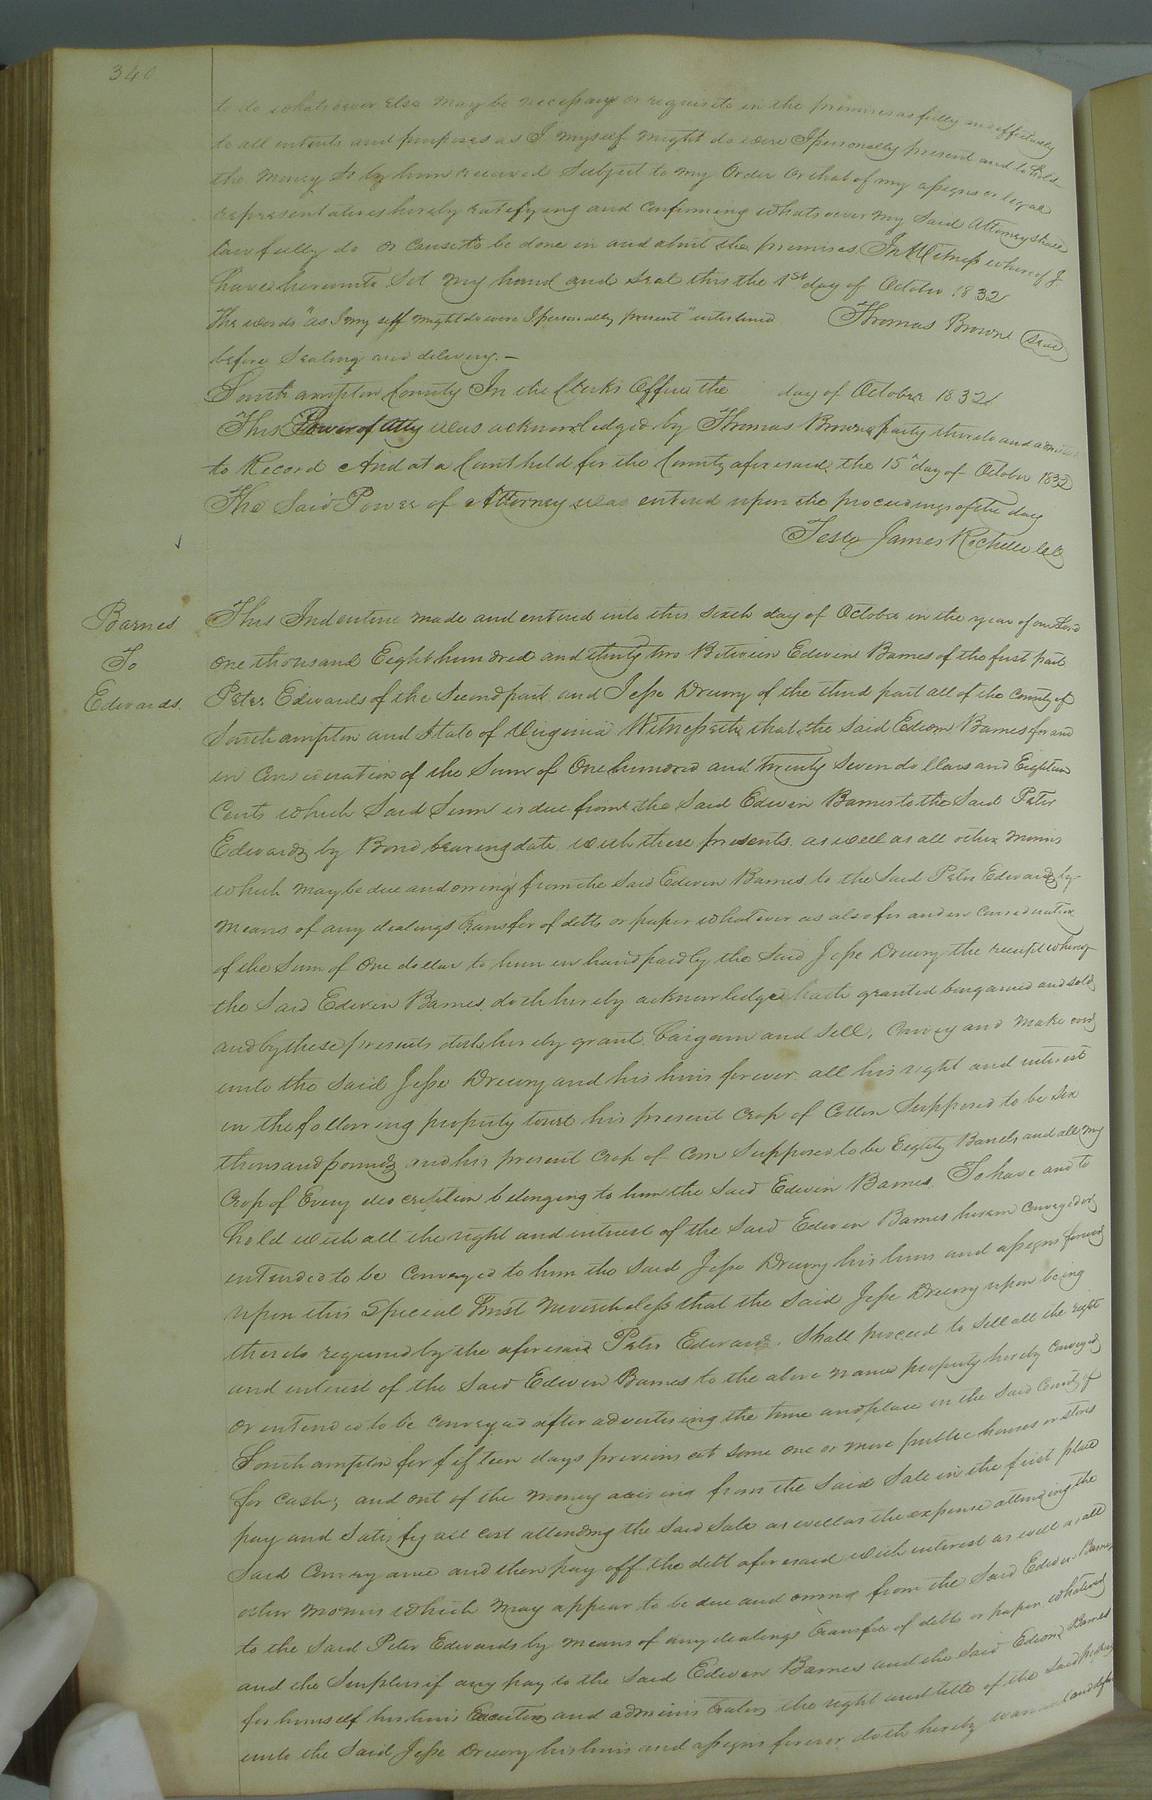 340
to do whatsoever else may be necessary or requisite in the premises as fully and effectually
to all intents and purposes as I myself might do were I personally present and to hold
the Money so by him received Subject to my Order or that of my assigns or legal
representatives hereby ratifying and Confirming whatsoever my Said Attorney shall
lawfully do or cause to be done in and about the premises. In Witness whereof I
have hereunto Set my hand and Seal this the 1st day of October 1832
The words "as I my self might do were I personally present" interlined Thomas Browne Seal
before Sealing and delivery. —
Southampton County In the Clerks Office the day of October 1832
This Power of Atty was acknowledged by Thomas Browne party thereto and admitted
to Record And at a Court held for the County aforesaid the 15th day of October 1832
The Said Power of Attorney was entered upon the proceedings of the day
Teste James Rochelle CC
Barnes
To
Edwards.
This Indenture made and entered into this sixth day of October in the year of our Lord
One thousand Eight hundred and thirty two Between Edwin Barnes of the first part
Peter Edwards of the Second part and Jesse Drewry of the third part all of the County of
Southampton and State of Virginia Witnesseth that the Said Edwin Barnes for and
in Consideration of the Sum of One hundred and Twenty Seven dollars and Eighteen
Cents which Said Sum is due from the Said Edwin Barnes to the Said Peter
Edwards by Bond bearing date with these presents. as well as all other monies
which may be due and owing from the Said Edwin Barnes to the Said Peter Edwards by
means of any dealings transfer of debts or paper whatever as also for and in Consideration
of the Sum of One dollar to him in hand paid by the Said Jesse Drewry the receipt whereof
the Said Edwin Barnes doth hereby acknowledge hath granted bargained and sold
and by these presents doth hereby grant. bargain and Sell, Convey and make over
unto the Said Jesse Drewry and his heirs forever all his right and interest
in the following property towit his present Crop of Cotton Supposed to be Six
thousand pounds and his present Crop of Corn Supposed to be Eighty Barrels and all my
Crop of Every discription belonging to him the Said Edwin Barnes. To have and to
hold with all the right and interest of the Said Edwin Barnes herein conveyed or
intended to be Conveyed to him the Said Jesse Drewry his heirs and assigns forever
upon this Special Trust nevertheless that the Said Jesse Drewry upon being
thereto required by the aforesaid Peter Edwards. Shall proceed to Sell all the right
and interest of the Said Edwin Barnes to the above named property hereby Conveyed
or intended to be conveyed after advertising the time and place in the Said County of
Southampton for fifteen days previous at some one or more public houses or stores
for Cash, and out of the money arising from the Said Sale in the first place
pay and Satisfy all cost attending the Said Sale as well as the expense attending the
Said Conveyance and then pay off the debt aforesaid with interest as well as all
other monies which may appear to be due and owing from the Said Edwin Barnes
to the Said Peter Edwards by means of any dealings transfer of debts or paper whatever
and the Surplus if any pay to the Said Edwin Barnes and the Said Edwin Barnes
for himself his heirs Executors and administrators the right and title of the Said property
unto the Said Jesse Drewry his heirs and assigns forever doth hereby warrant and defend